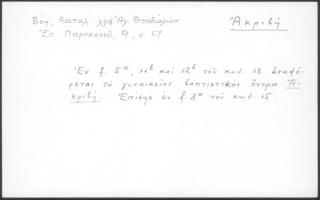 Βέη, Καταλ. χγφ Ἁγ. Θεοδώρων
Ἀκριβή
Ἐπ. Παρνασσοῦ, 9, σ. 67
Ἐν f. 5ᵃ, 11ᵇ καὶ 12ᵇ τοῦ κωδ. 13 ἀναφέ-
ρεται τὸ γυναικεῖον βαπτιστικὸν ὄνομα Ἀ-
κριβή. Ἐπίσης ἐν f 3ᵃ τοῦ κωδ. 15.